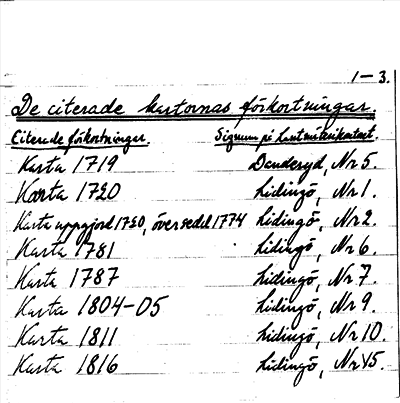 1–3.
De citerade kartornas förkortningar.
Citerade förkortningar. Signum på Lantmäterikontoret.
Karta 1719 Danderyd, Nr 5.
Karta 1720 Lidingö, Nr 1.
Karta uppgjord 1720, översedd 1774 Lidingö, Nr 2.
Karta 1781 Lidingö, Nr 6.
Karta 1787 Lidingö, Nr 7.
Karta 1804–05 Lidingö, Nr 9.
Karta 1811 Lidingö, Nr 10.
Karta 1816 Lidingö, Nr 15.